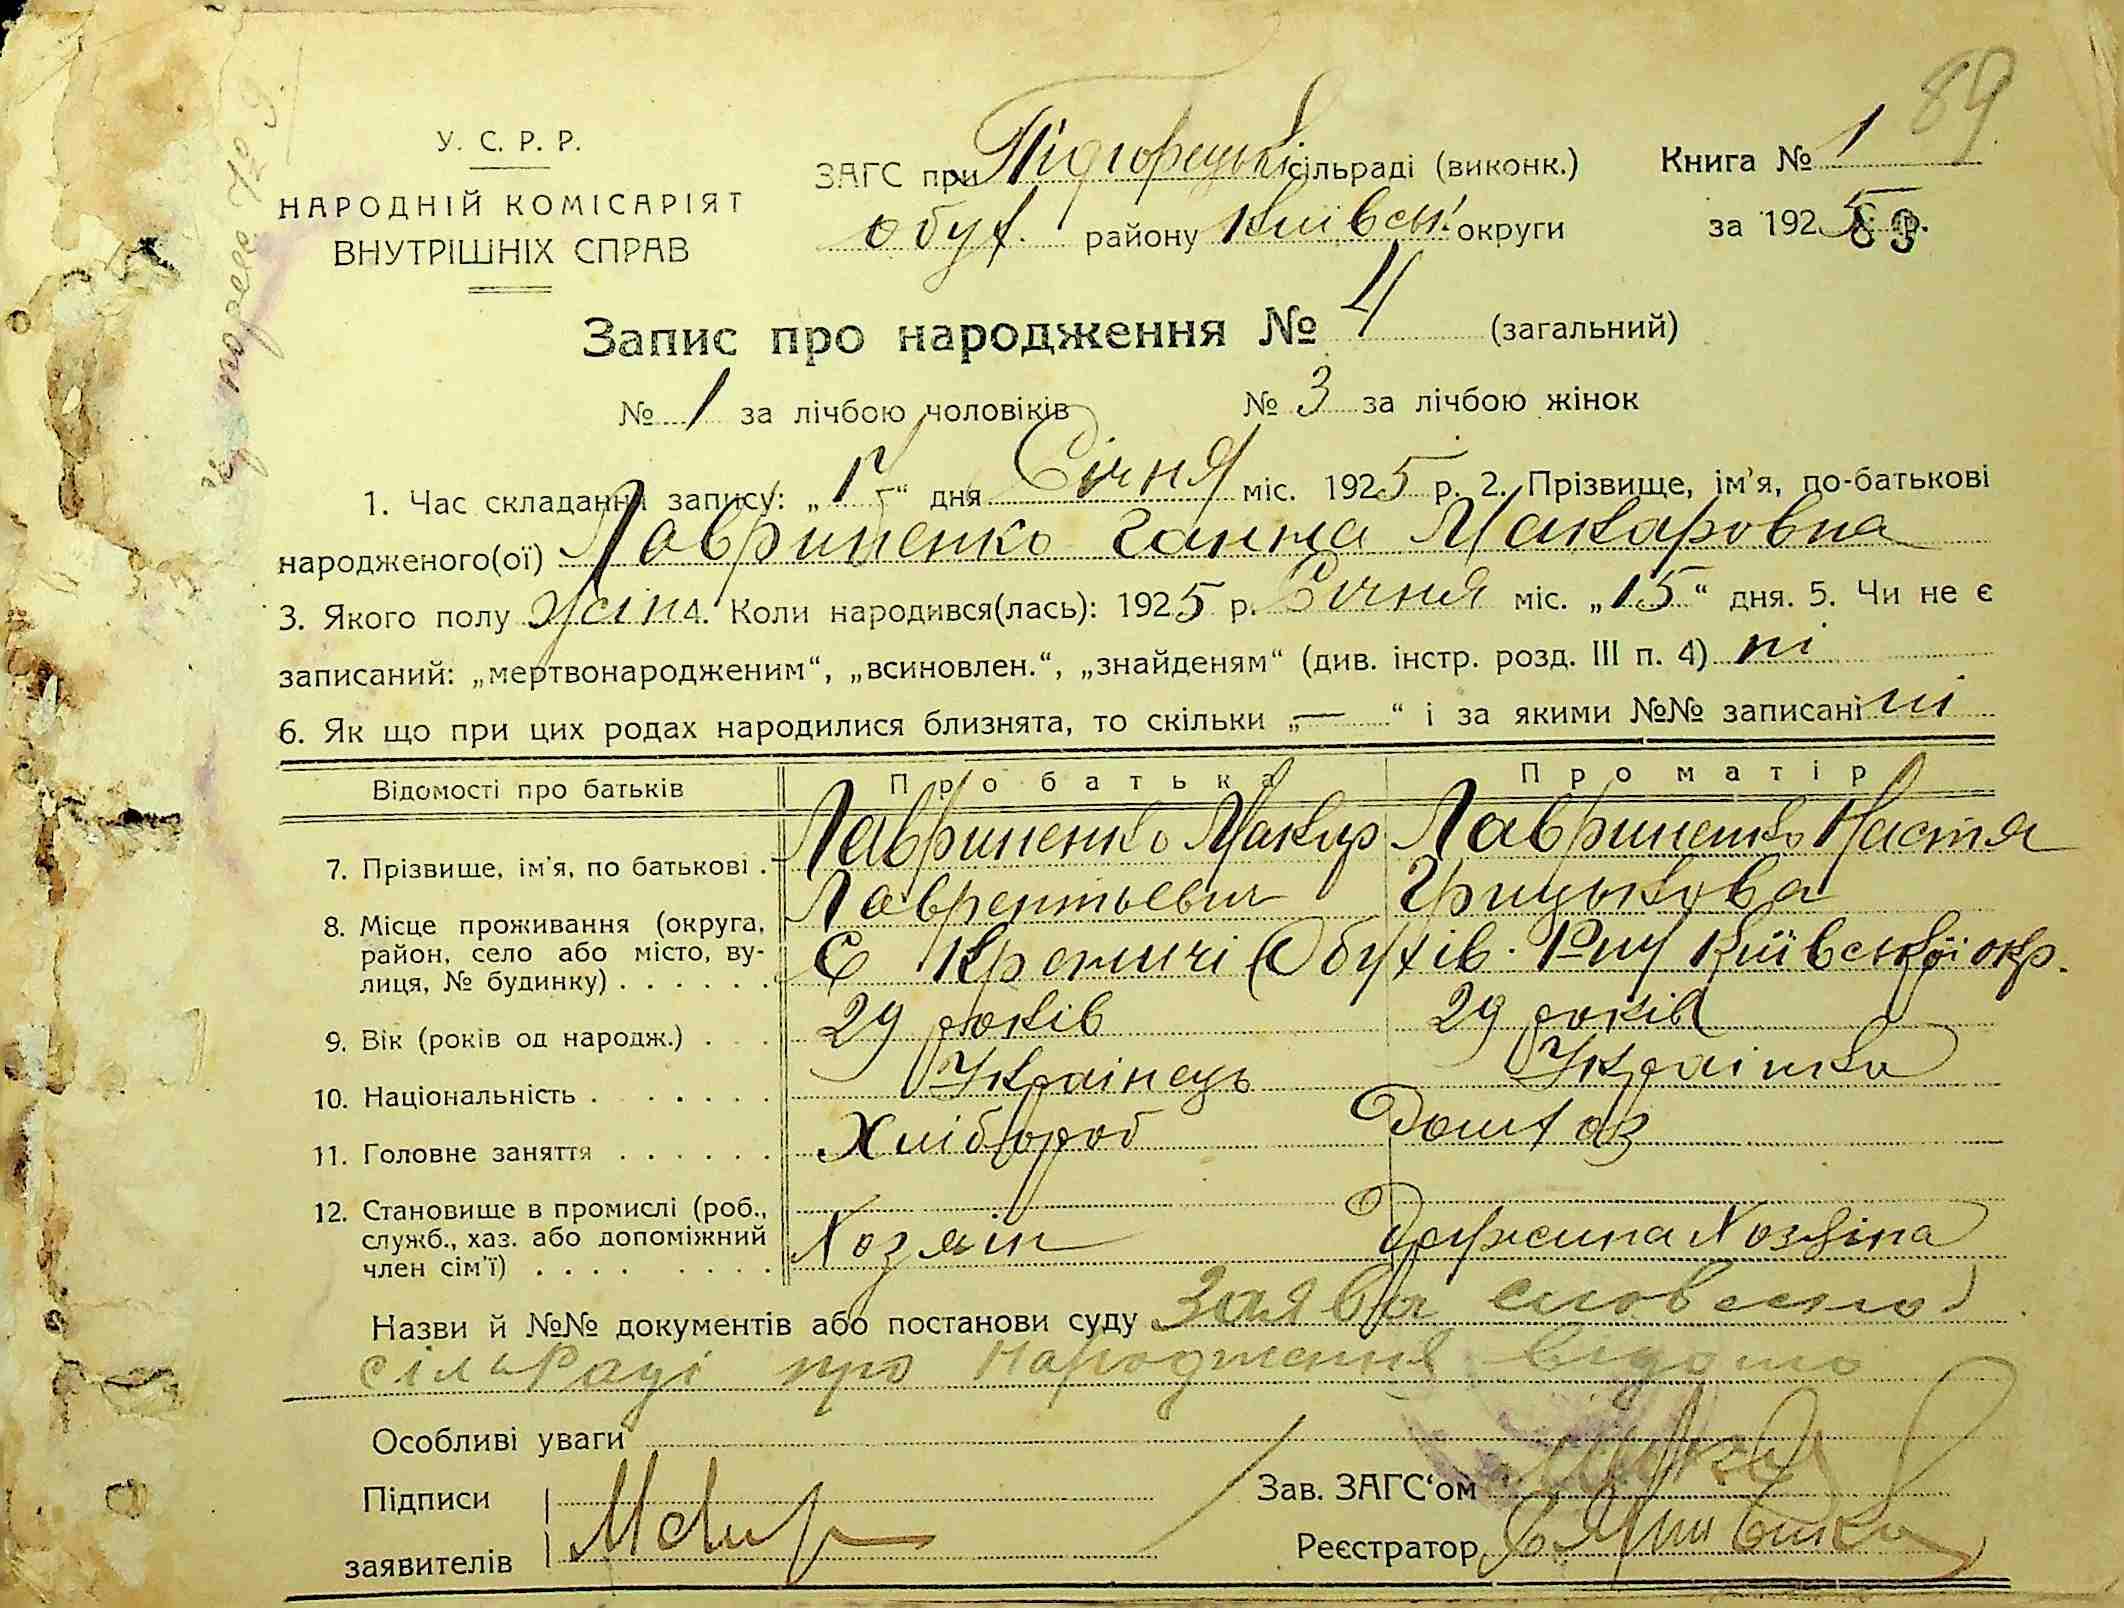 89
У. С. Р. Р.
НАРОДНІЙ КОМІСАРІЯТ
ВНУТРІШНІХ СПРАВ
ЗАГС при Підгорецькі сільраді (виконк.)
Обух. району Київськ. округи
Книга № 1
за 1925 р.
83
Запис про народження № 4 (загальний)
№ 1 за лічбою чоловіків № 3 за лічбою жінок
1. Час складання запису: „ “ дня Січня міс. 1925 р. 2. Прізвище, ім'я, по-батькові
народженого(ої) Лавриненко Ганна Макаровна
3. Якого полу жін 4. Коли народився(лась): 1925 р. Січня міс. „15“ дня. 5. Чи не є
записаний: „мертвонародженим“, „всиновлен.“, „знайденям“ (див. інстр. розд. III п. 4) ні
6. Як що при цих родах народилися близнята, то скільки „—“ і за якими №№ записані ні
Відомості про батьків Про батька Про матір
7. Прізвище, ім'я, по батькові . Лавриненко Макар Лавриненко Настя
Лаврентьевич Грицькова
8. Місце проживання (округа,
район, село або місто, ву-
лиця, № будинку) . . . . . . С Креничі Обухів. Р-ну Київської окр.
9. Вік (років од народж.) . . . 29 років 29 років
10. Національність . . . . . . . Українець Українка
11. Головне заняття . . . . . . Хлібороб Домхаз
12. Становище в промислі (роб.,
служб., хаз. або допоміжний
член сім'ї) . . . . . . . . . Хозяін Дружина Хозяіна
Назви й №№ документів або постанови суду Заява словесно
сільРаді про народження відомо
Особливі уваги
Підписи
заявителів
Зав. ЗАГС'ом
Реєстратор